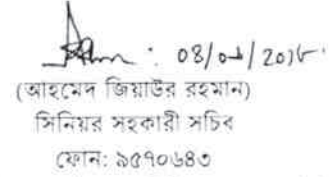 (আহমেদ জিয়াউর রহমান)
সিনিয়র সহকারী সচিব
ফোন: ৯৫৭০৬৪৩